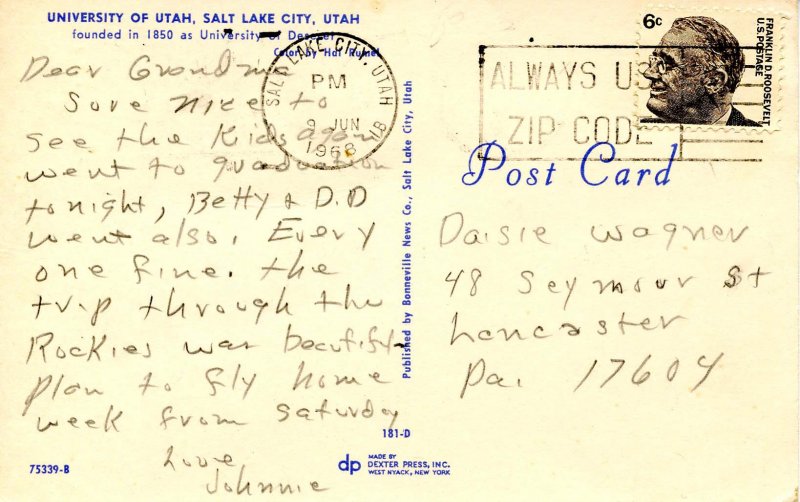 UNIVERSITY OF UTAH, SALT LAKE CITY, UTAH
founded in 1850 as University of Deseret
Color by Hal Rumel
Dear Grandma
Sure nice to
see the kids again
went to graduation
tonight, Betty & D.D
went also. Every
one fine. the
trip through the
Rockies was beautiful
plan to fly home
week from Saturday
Love
Johnnie
75339-B
181-D
dp
MADE BY
DEXTER PRESS, INC.
WEST NYACK, NEW YORK
Published by Bonneville News Co., Salt Lake City, Utah
SALT LAKE CITY, UTAH
PM
9 JUN
1968
ALWAYS US
ZIP CODE
6c
FRANKLIN D. ROOSEVELT
U.S. POSTAGE
Post Card
Daisie Wagner
48 Seymour St
Lancaster
Pa. 17604